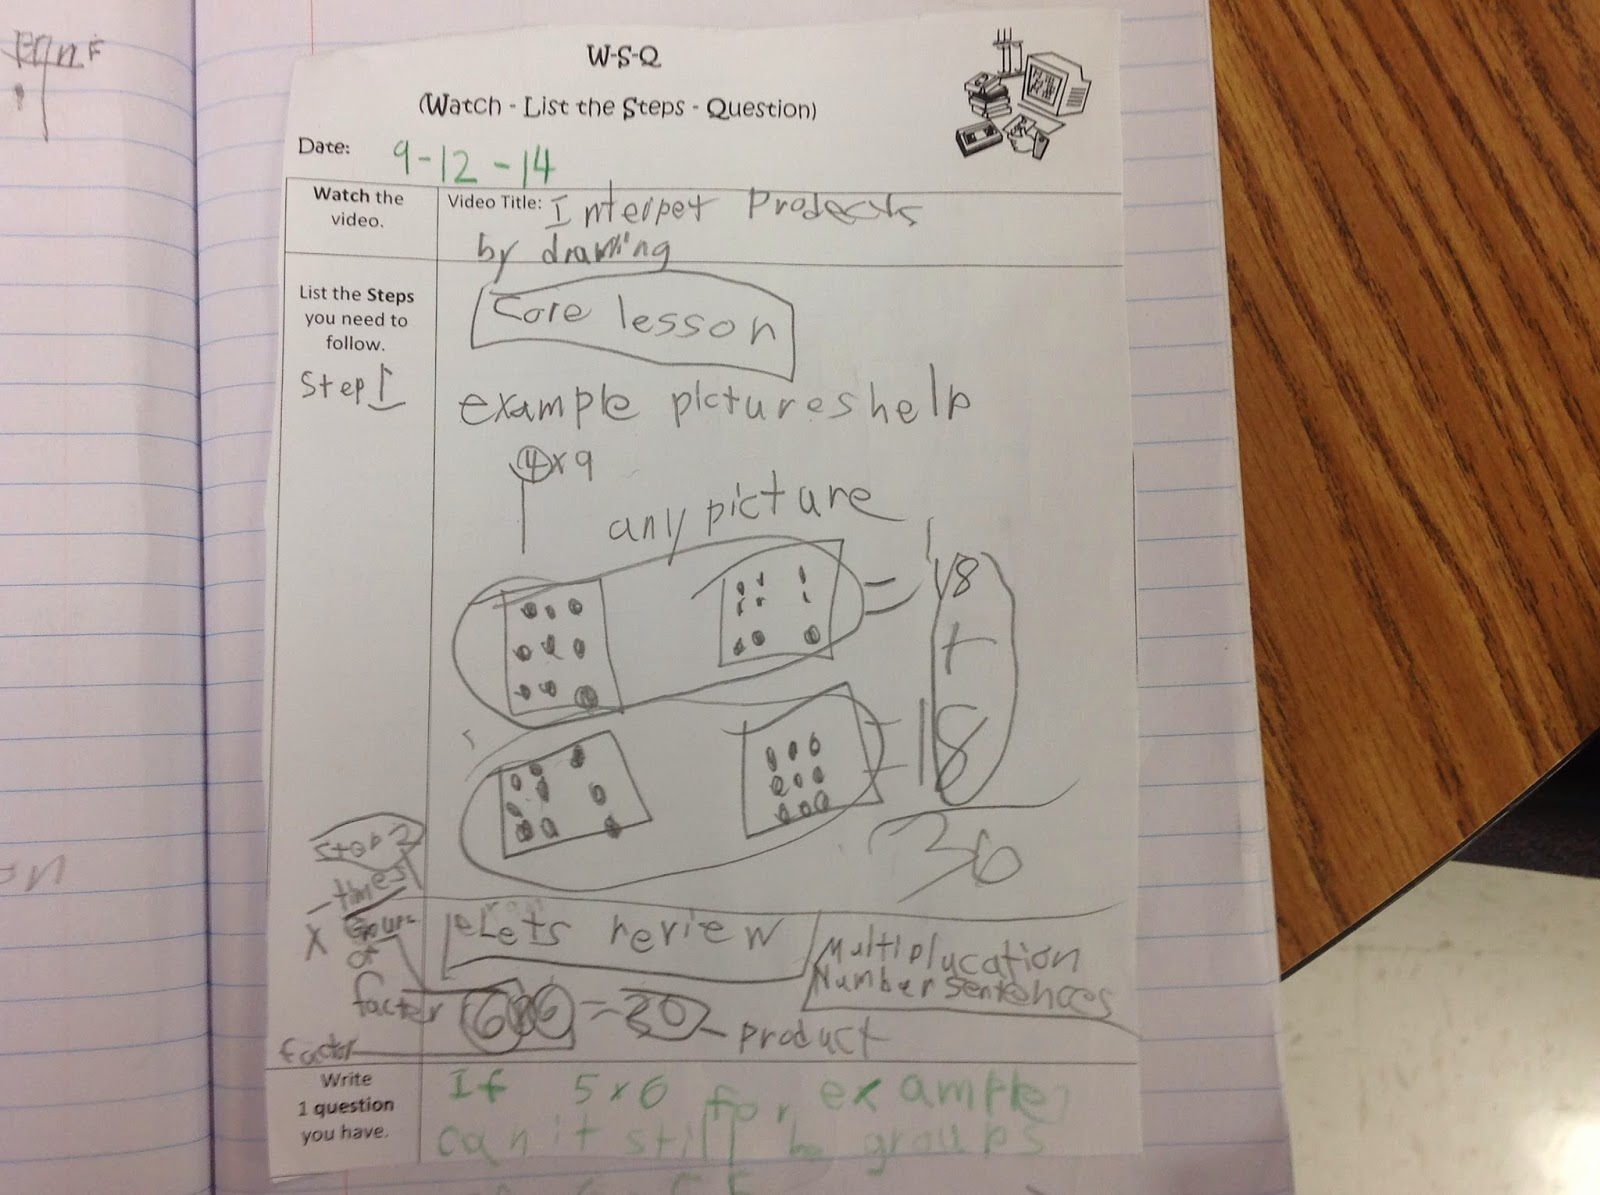 W-S-Q
(Watch - List the Steps - Question)
Date: 9-12-14
Watch the
video.
Video Title: Interpet Prodects
by drawing
List the Steps
you need to
follow.
Step 1
Core lesson
example pictures help
4x9
any picture
= 18
+
= 18
36
Step 2
times
X Groups
of
Lets review
Multiplucation
Number Sentences
facter
= 30 product
factor
Write
1 question
you have.
If 5x6 for example
can it still be groups